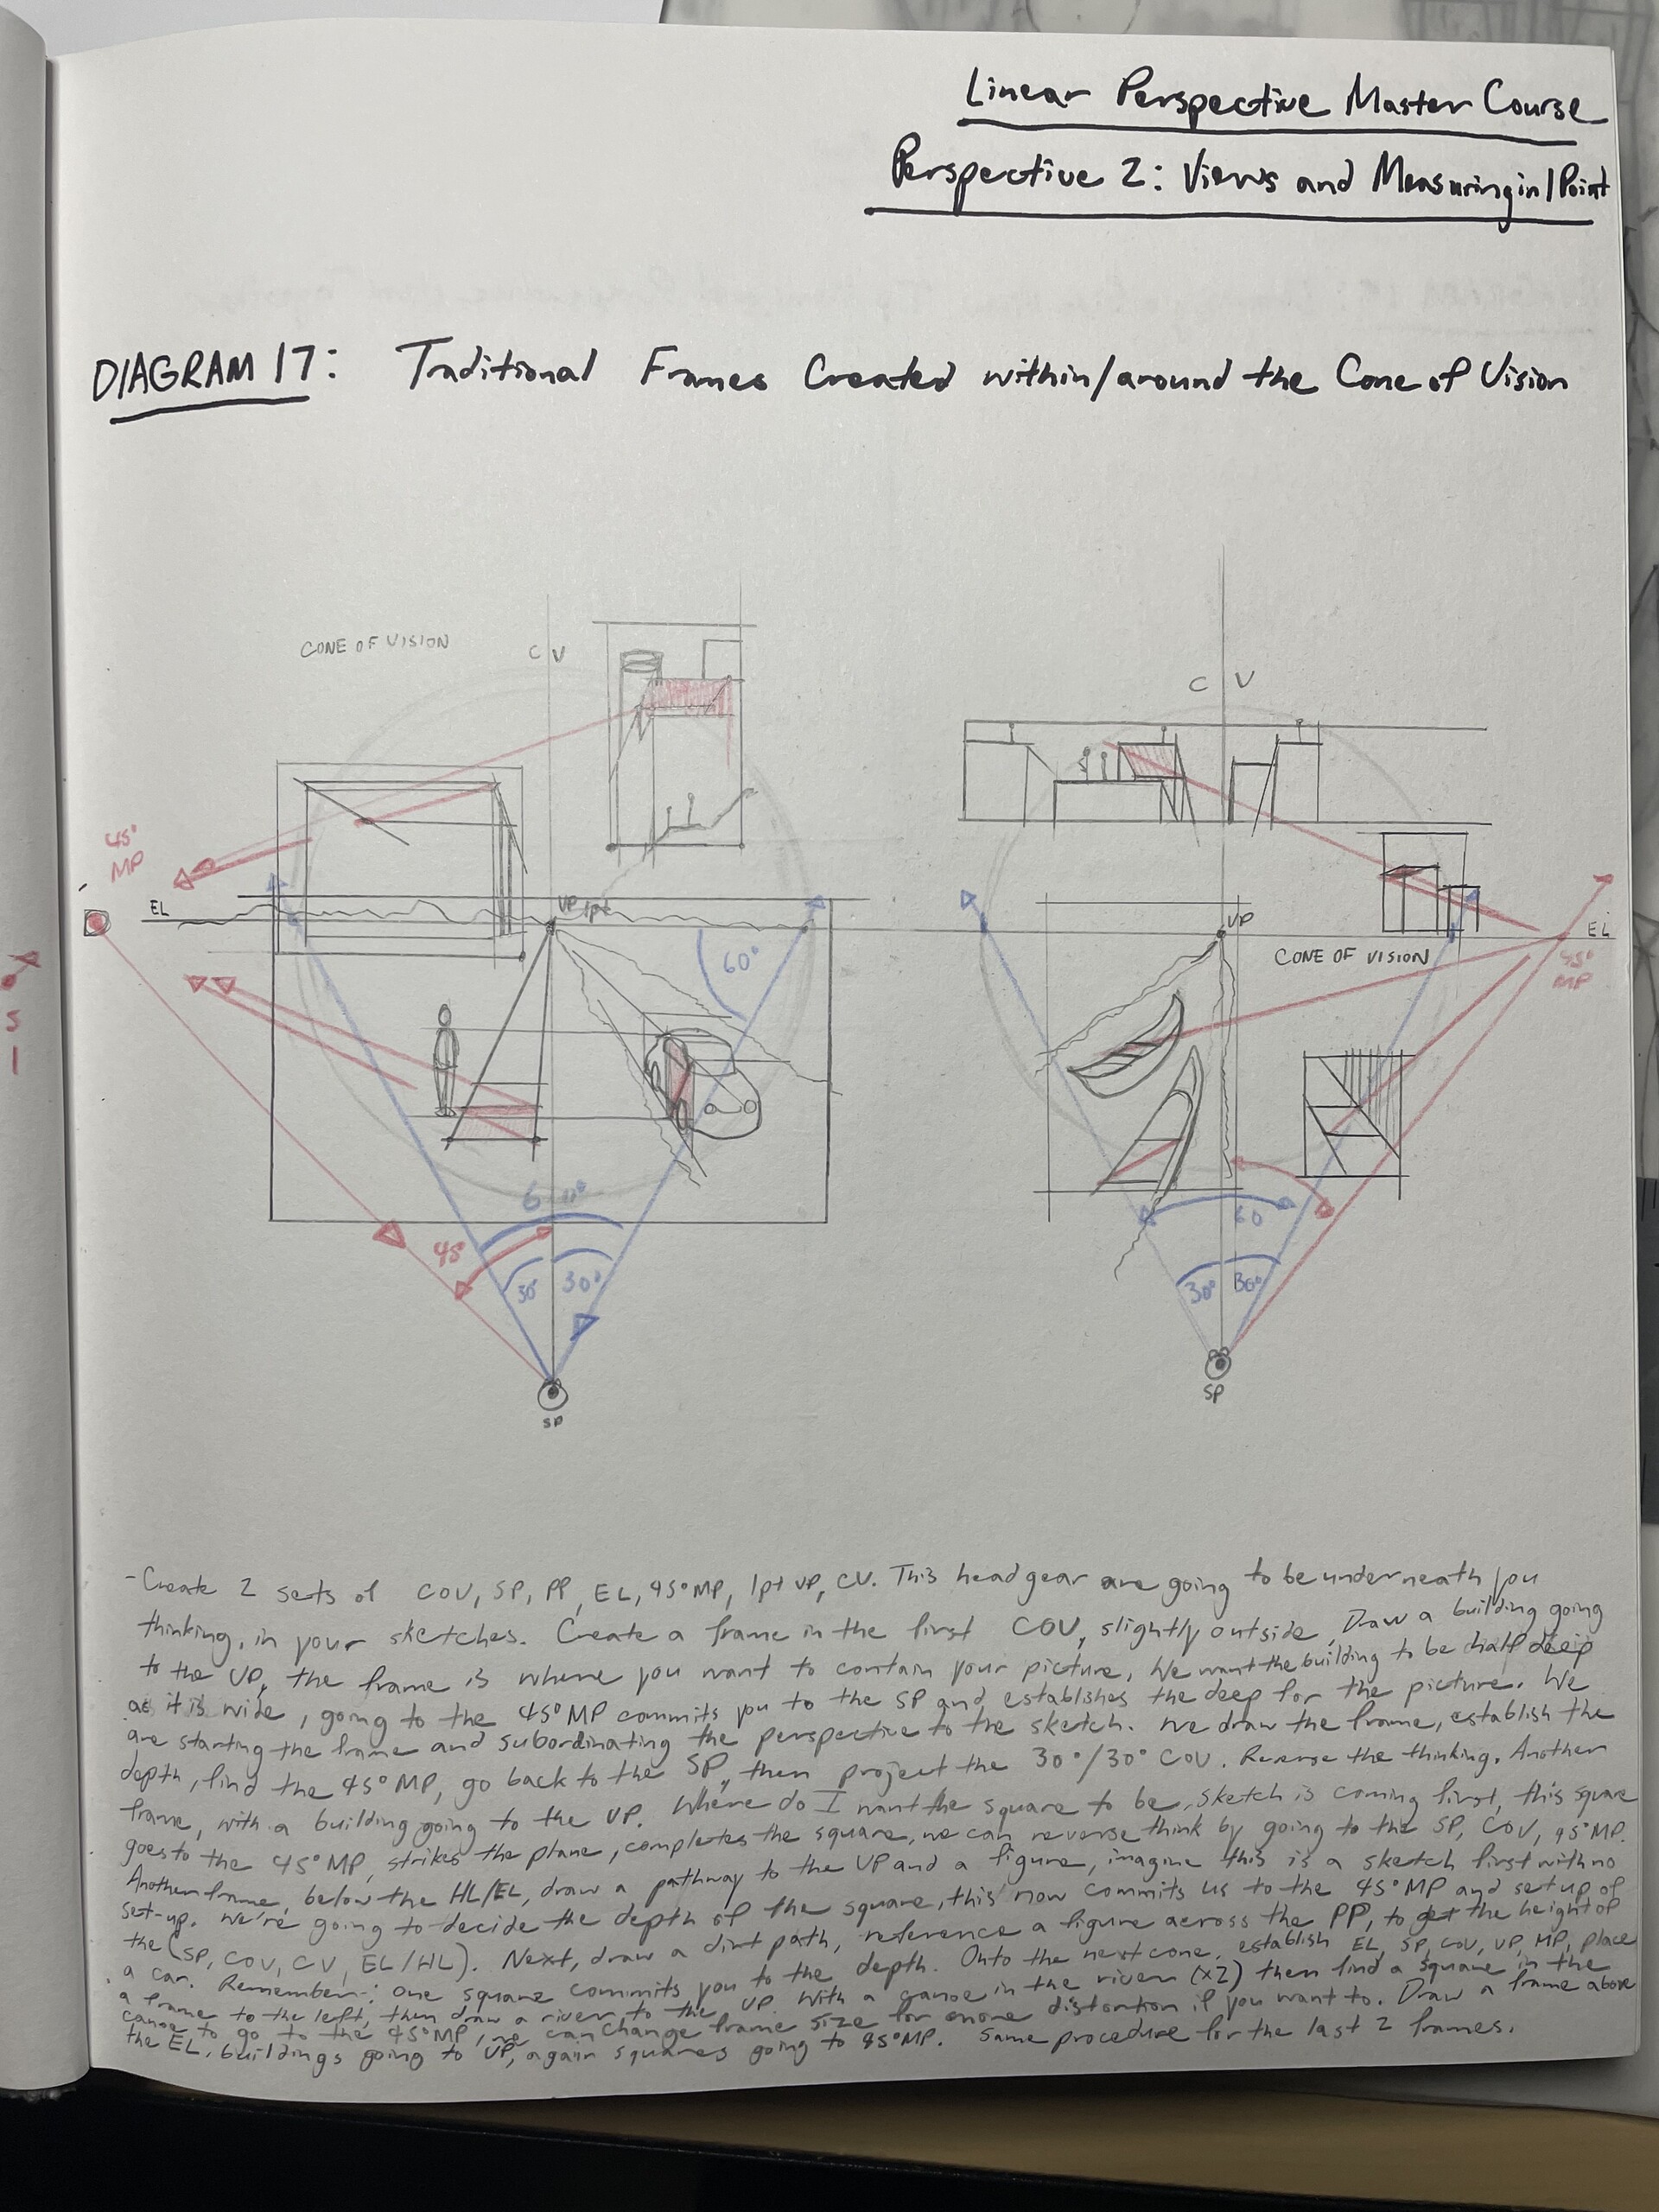 Linear Perspective Master Course
Perspective 2: Views and Measuring in 1 Point
DIAGRAM 17: Traditional Frames Created within/around the Cone of Vision
CONE OF VISION
C V
C V
45°
MP
EL
VP 1pt
60°
VP
CONE OF VISION
EL
45°
MP
60°
45°
30° 30°
SP
60
30° 30°
SP
- Create 2 sets of COV, SP, PP, EL, 45° MP, 1pt VP, CV. This headgear are going to be underneath you
thinking, in your sketches. Create a frame in the first COV, slightly outside. Draw a building going
to the VP, the frame is where you want to contain your picture, We want the building to be half deep
as it is wide, going to the 45° MP commits you to the SP and establishes the deep for the picture. We
are starting the frame and subordinating the perspective to the sketch. We draw the frame, establish the
depth, find the 45° MP, go back to the SP, then project the 30°/30° COV. Reverse the thinking. Another
frame, with a building going to the VP. Where do I want the square to be, sketch is coming first, this square
goes to the 45° MP, strikes the plane, completes the square, we can reverse think by going to the SP, COV, 45° MP.
Another frame, below the HL/EL, draw a pathway to the VP and a figure, imagine this is a sketch first with no
set-up. We're going to decide the depth of the square, this now commits us to the 45° MP and set up of
the (SP, COV, CV, EL/HL). Next, draw a dirt path, reference a figure across the PP, to get the height of
a car. Remember: one square commits you to the depth. Onto the next cone, establish EL, SP, COV, VP, MP, place
a frame to the left, then draw a river to the VP. With a canoe in the river (x2) then find a square in the
canoe to go to the 45° MP, we can change frame size for more distortion if you want to. Draw a frame above
the EL, buildings going to VP, again squares going to 45° MP. Same procedure for the last 2 frames.